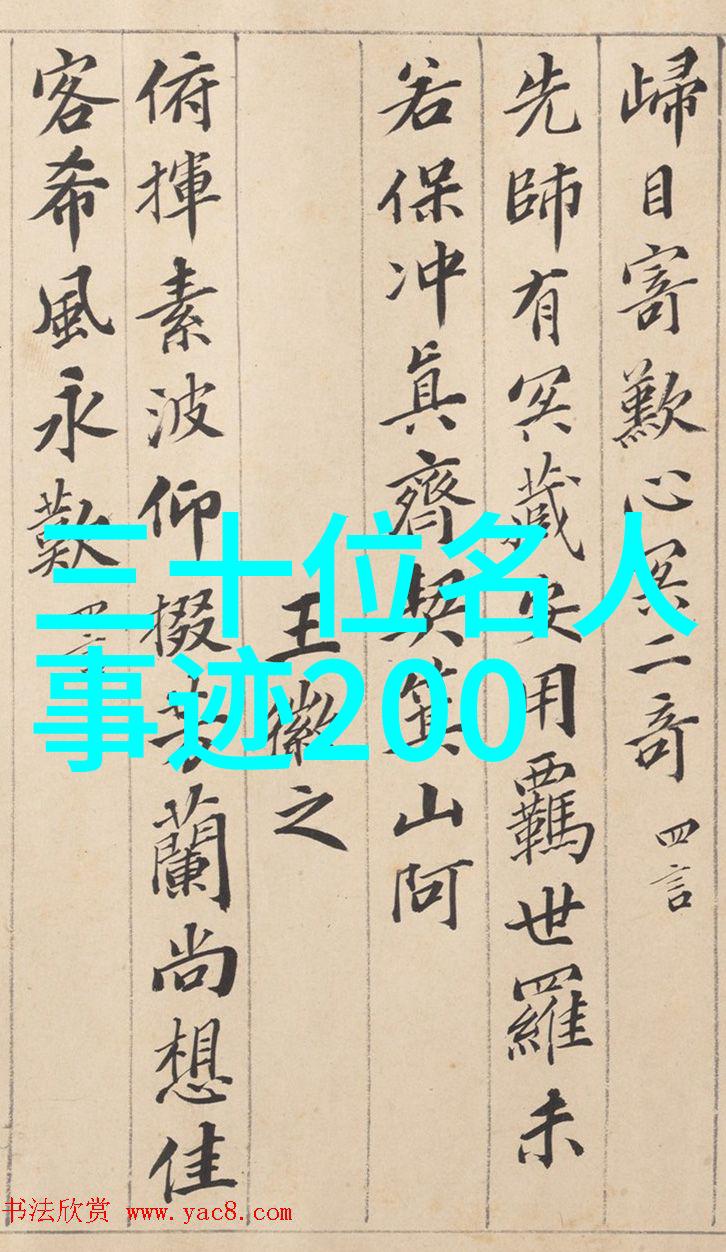 歸目寄歡心冥二奇 四言
先師有冥藏安用羈世羅未
若保冲眞齊契箕山阿
王徽之
俯揮素波仰掇芳蘭尚想佳
客希風永歎 四言
三十位名人
事迹200
书法欣赏 www.yac8.com